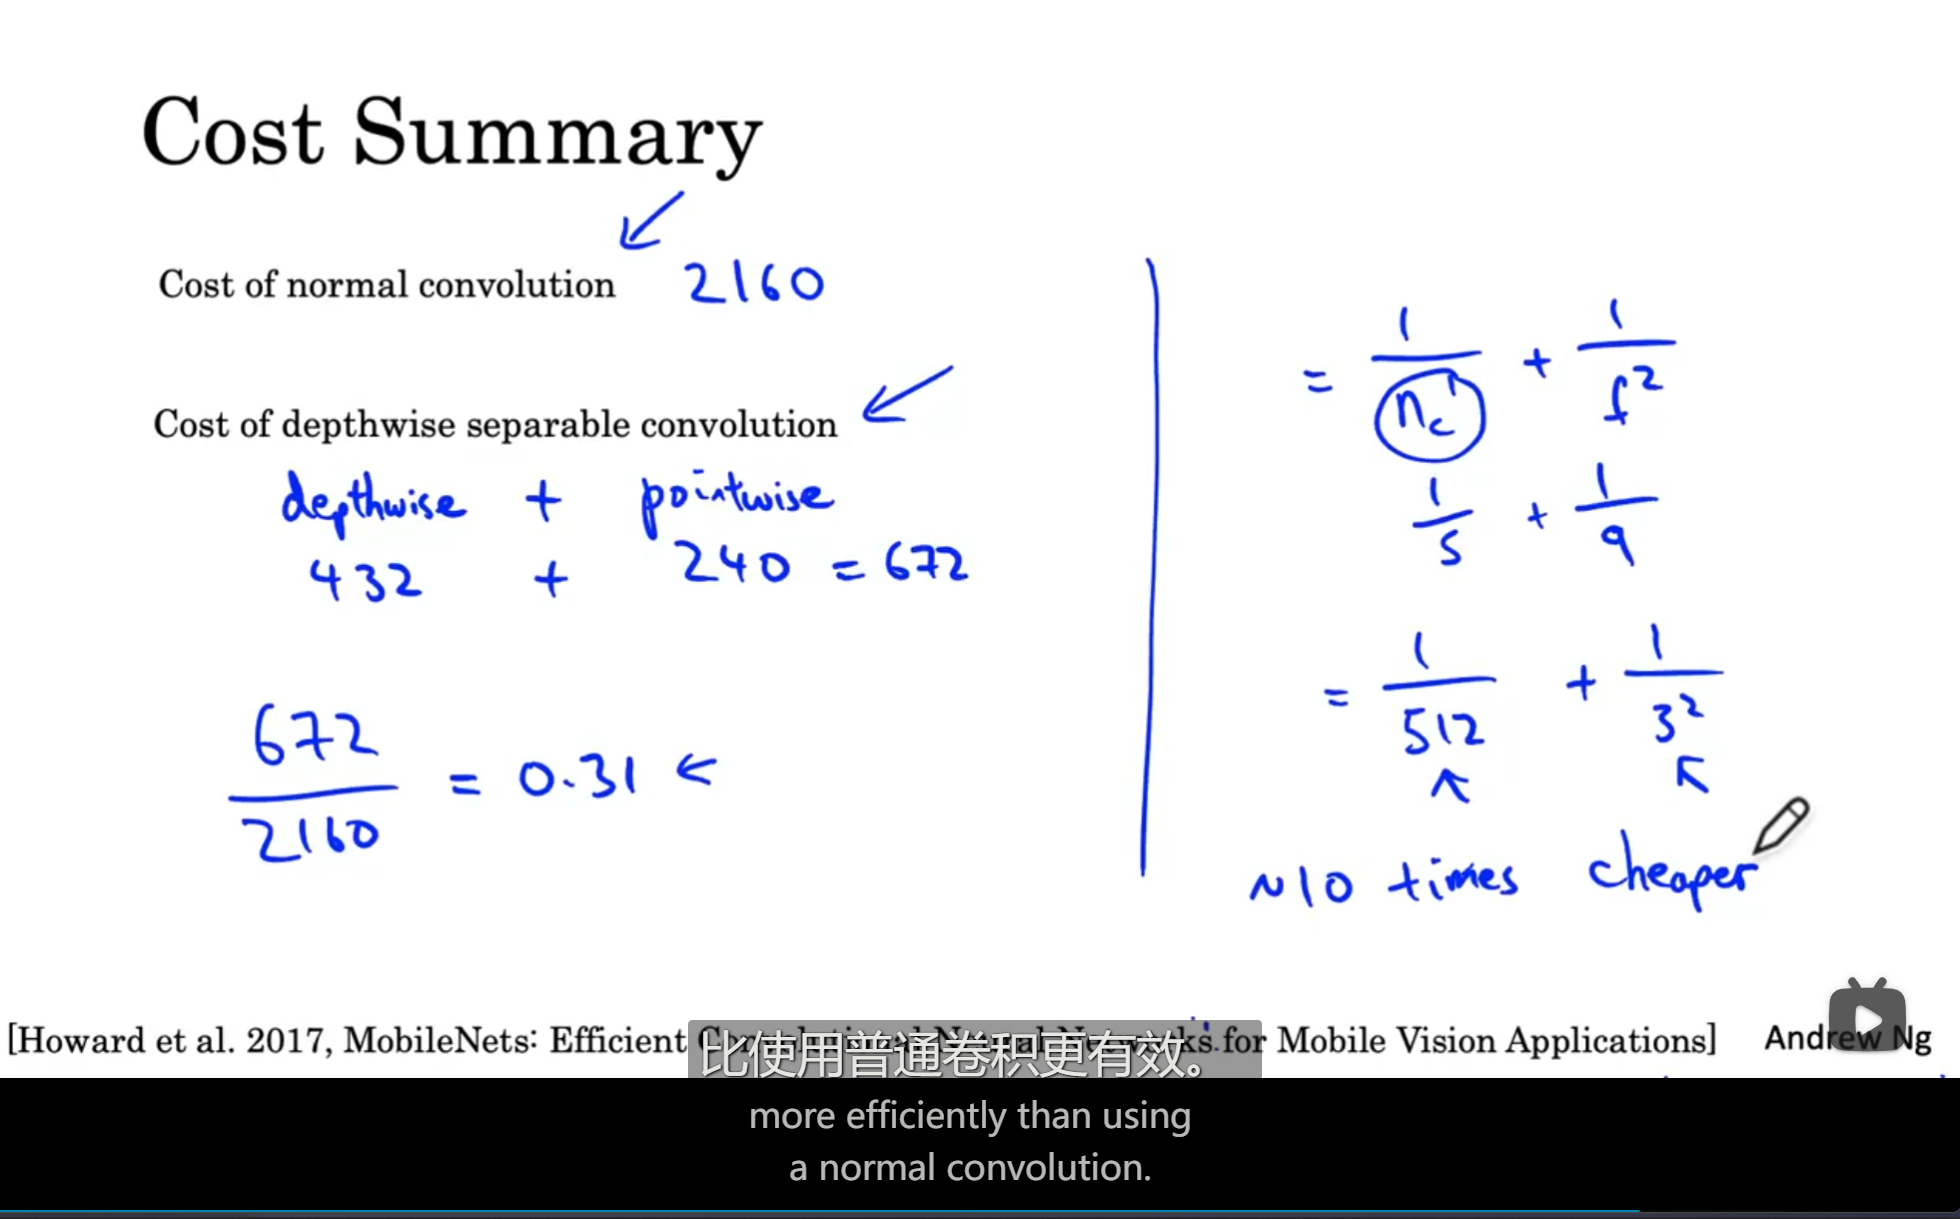 Cost Summary
Cost of normal convolution 2160
Cost of depthwise separable convolution
depthwise + pointwise
432 + 240 = 672
672/2160 = 0.31 ←
= 1/nc' + 1/f²
1/5 + 1/9
= 1/512 + 1/3²
~10 times cheaper
[Howard et al. 2017, MobileNets: Efficient Convolutional Neural Networks for Mobile Vision Applications] Andrew Ng
比使用普通卷积更有效。
more efficiently than using
a normal convolution.